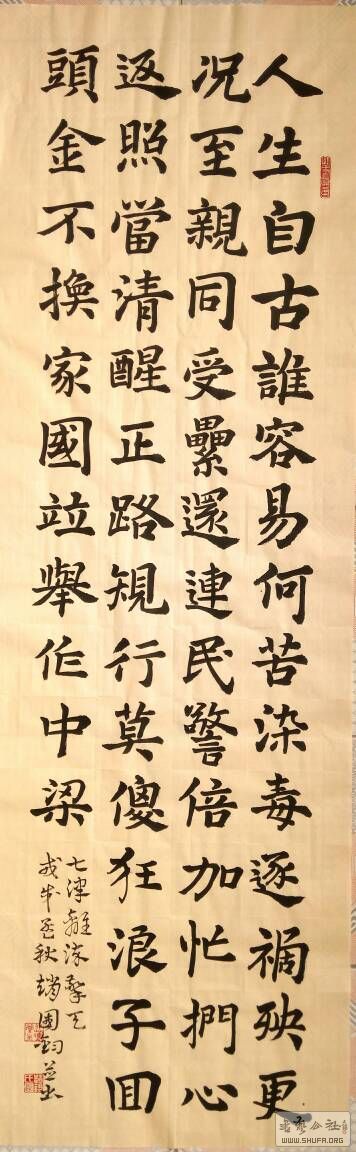 人生自古誰容易何苦染毒逐禍殃更
况至親同受纍還連民警倍加忙捫心
返照當清醒正路規行莫傻狂浪子回
頭金不換家國竝舉作中梁
七律
秋趙國鈞並书
书艺公社
WWW.SHUFA.ORG